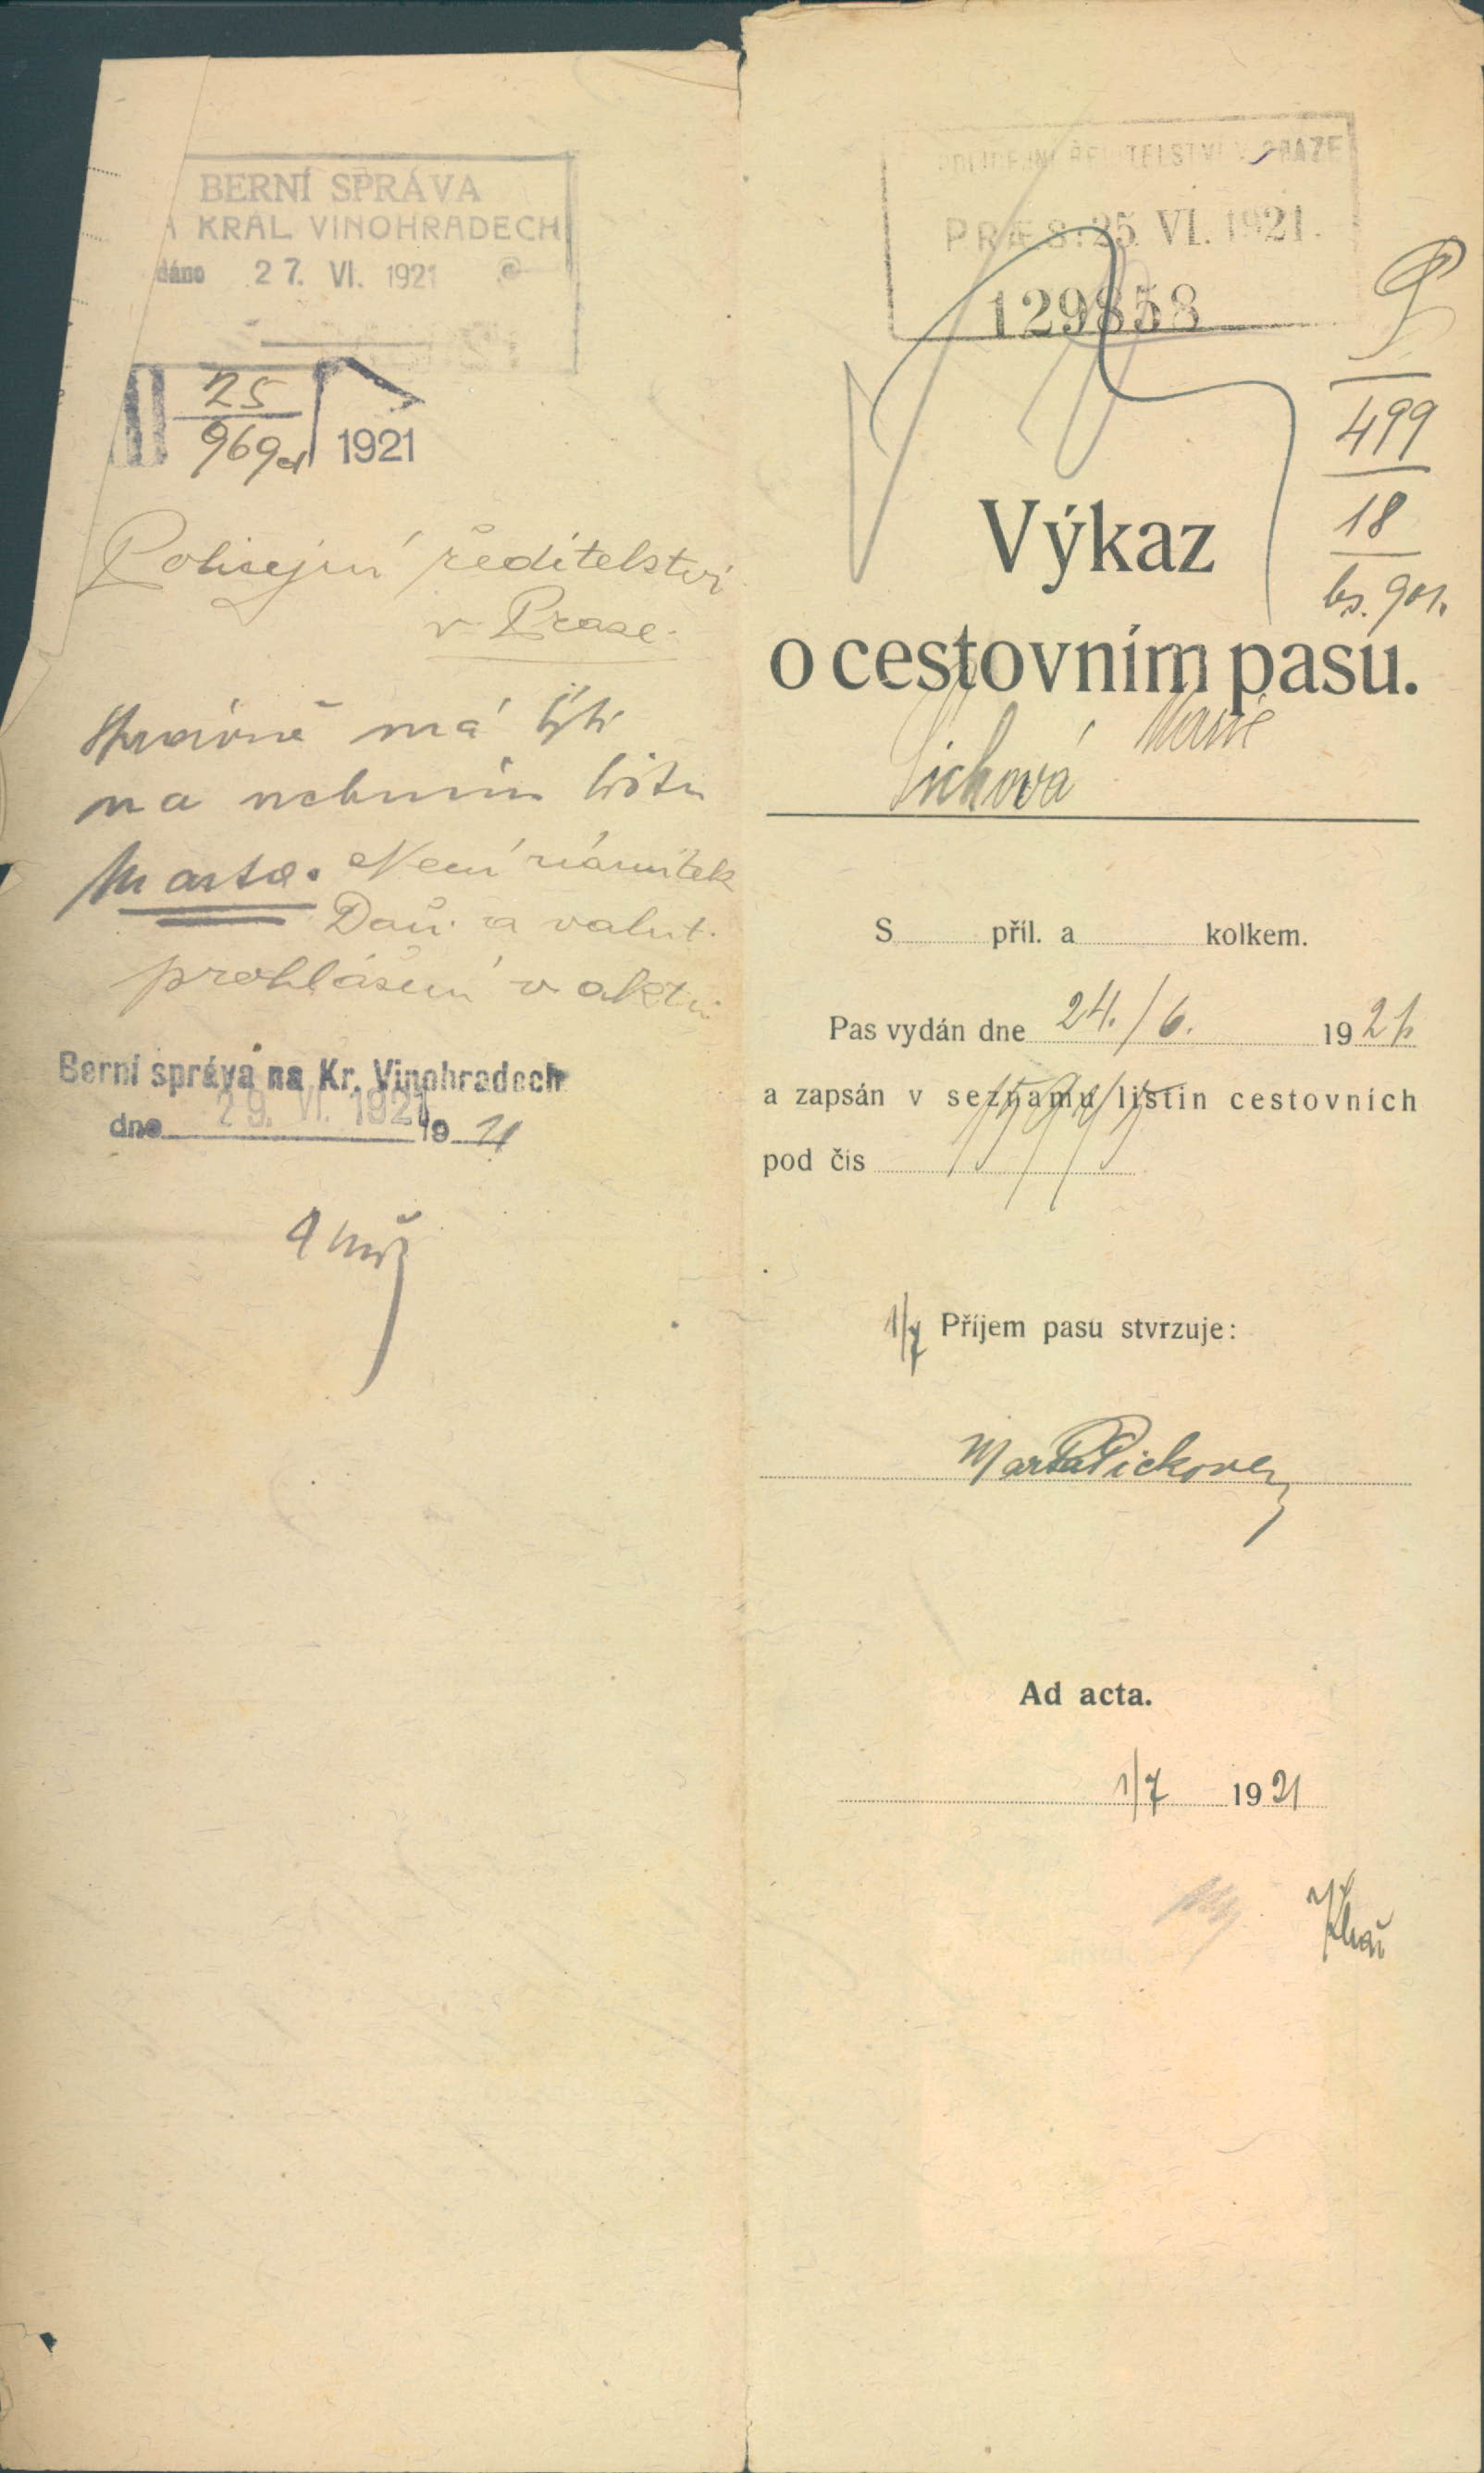 BERNÍ SPRÁVA
A KRÁL VINOHRADECH
dáno 27. VI. 1921
25
969 1921
Policejní ředitelství
v Praze.
Správně má býti
na
Marta. Není námitek
Daň. a valut.
prohlášení v aktu
Berní správa na Kr. Vinohradech
dne 29. VI. 1921 19 21
POLICEJNÍ ŘEDITELSTVÍ V PRAZE
PRÆS: 25 VI. 1921.
129858
P
499
18
Výkaz
o cestovním pasu.
Marie
S příl. a kolkem.
Pas vydán dne 24./6. 1921
a zapsán v seznamu listin cestovních
pod čís
1/7 Příjem pasu stvrzuje:
Marta Picková
Ad acta.
1/7 1921